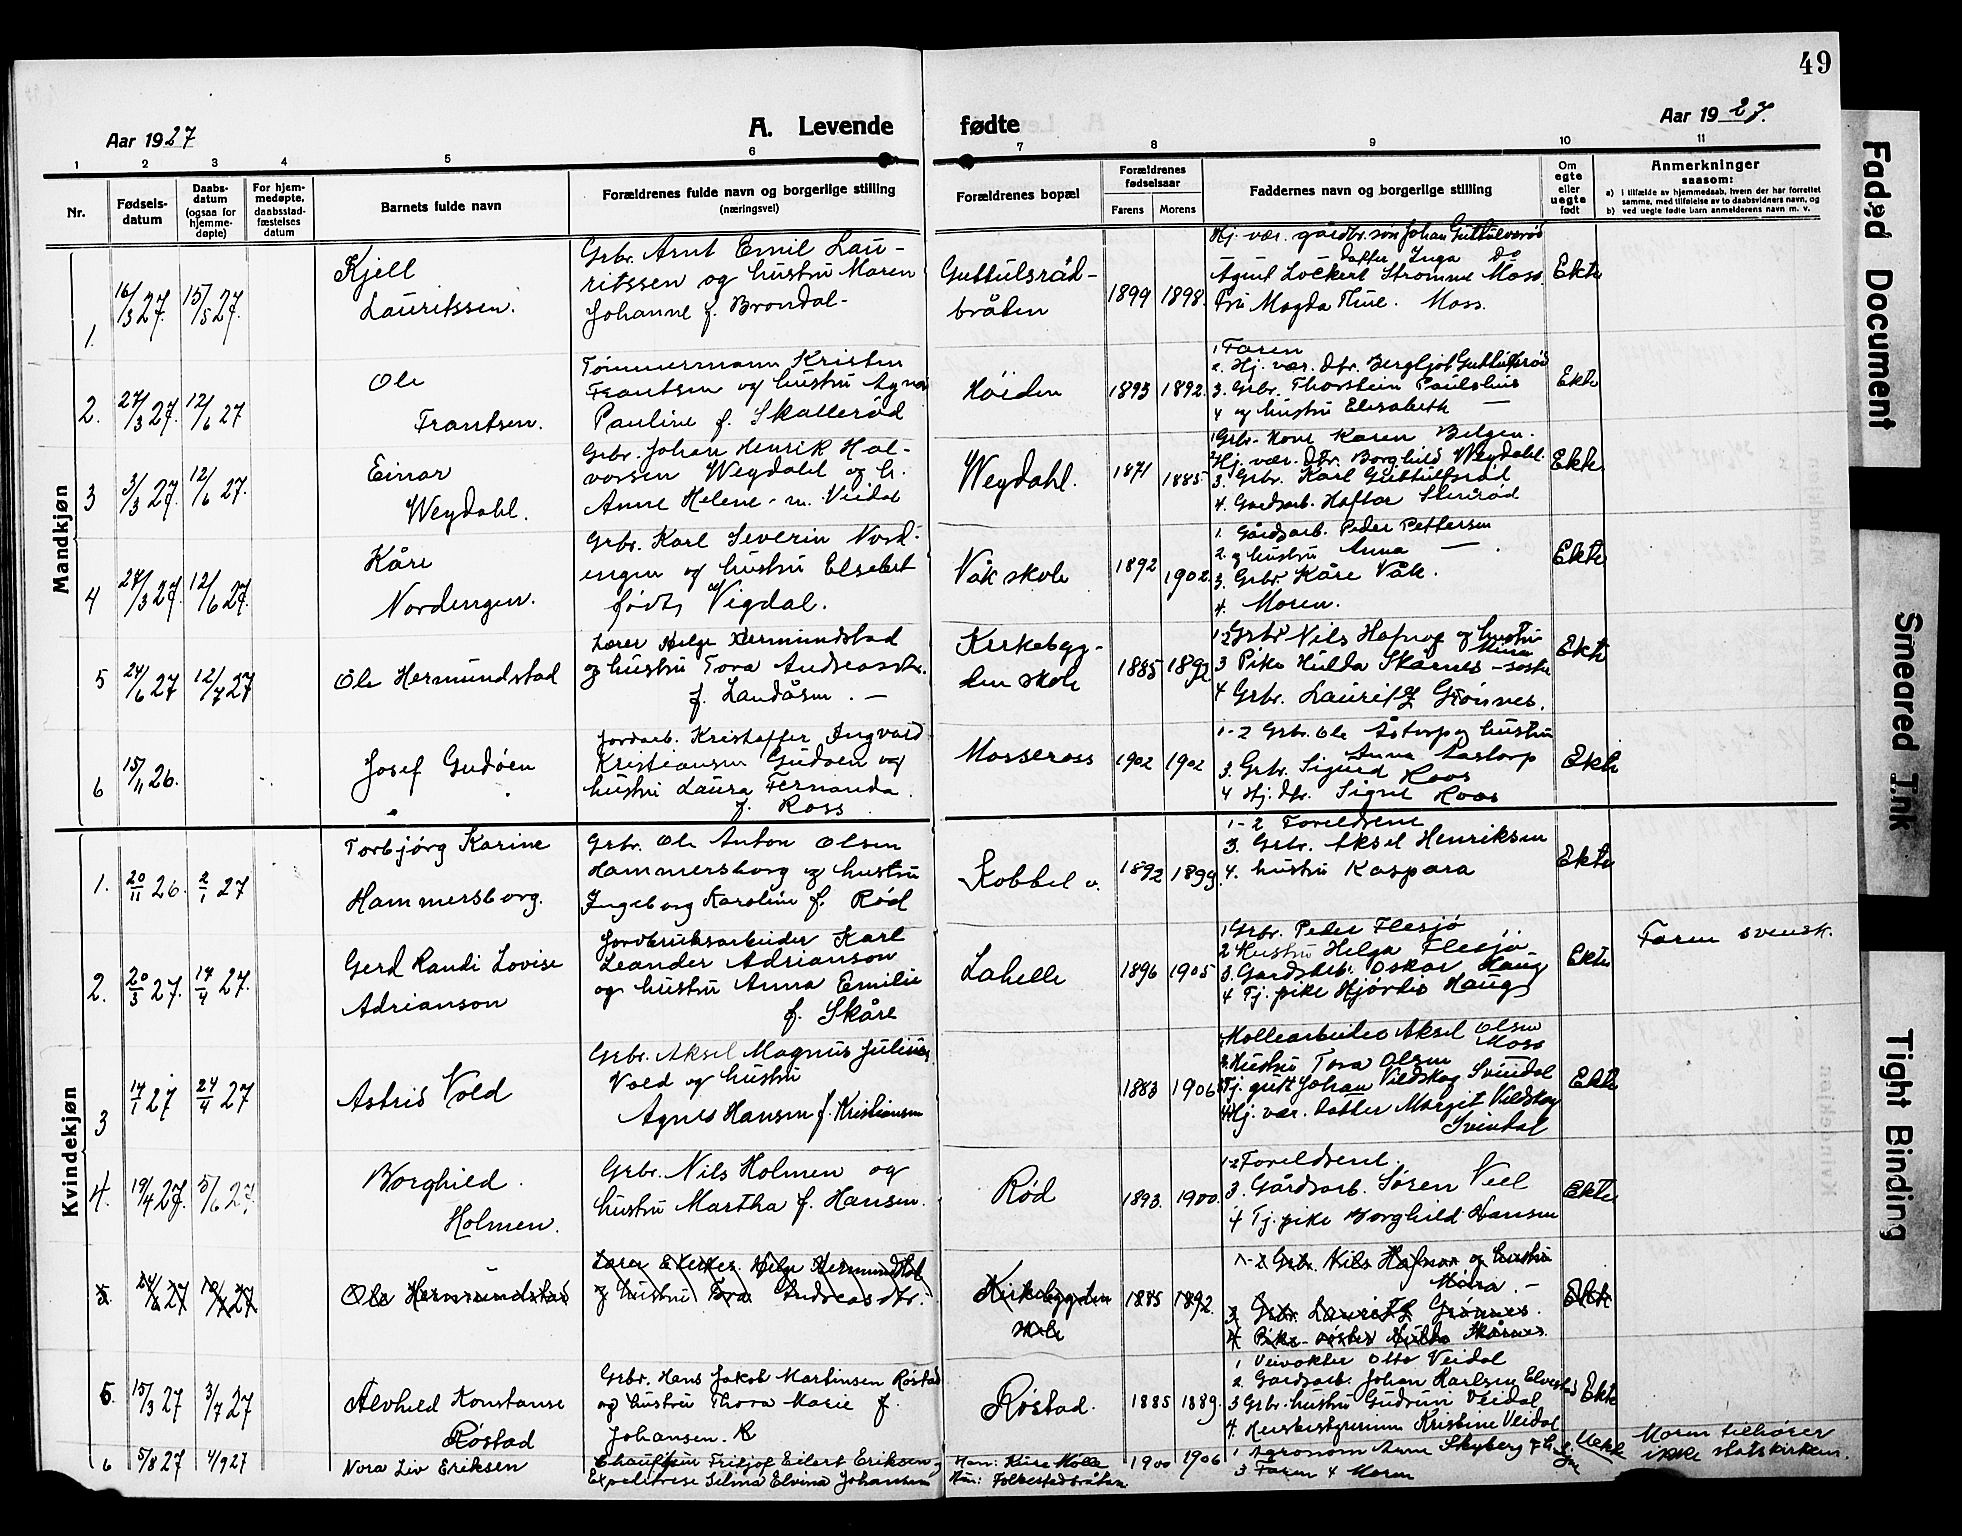 49
Aar 1927
A. Levende fødte
Aar 1927.
1 2 3 4 5 6 7 8 9 10 11
Nr.
Fødsels-
datum
Daabs-
datum
(ogsaa for
hjemme-
døpte)
For hjem-
medøpte,
daabsstad-
fæstelses
datum
Barnets fulde navn
Forældrenes fulde navn og borgerlige stilling
(næringsvei)
Forældrenes bopæl
Forældrenes
fødselsaar
Farens Morens
Faddernes navn og borgerlige stilling
Om
egte
eller
uegte
født
Anmerkninger
saasom:
a) i tilfælde av hjemmedaab, hvem der har forrettet
samme, med tilføielse av to daabsvidners navn, og
b) ved uegte fødte barn anmelderens navn m. v.
Mandkjøn
1. 16/3 27. 15/5 27.
Kjell
Lauritssen.
Grbr. Arnt Emil Lau-
ritssen og hustru Maren
Johanne f. Brondal-
Guttulsrød-
bråten
1899 1898.
Hj. vær. gårdbr. søn Johan Guttulvsrød
datter Inga do
Agent Lockert Stromme Moss.
Fru Magda Thue. Moss.
Ekte
2. 27/3 27. 12/6 27
Ole
Frantsen.
Tømmermann Kristen
Frantsen og hustru Agnes
Pauline f. Skallerød
Høiden
1893 1892.
1 Faren
2. Hj. vær. dtr. Bergljot Guttulsrød
3. Grbr. Thorstein Paulshus
4 og hustru Elisabeth —
Ekte
3 3/3 27. 12/6 27.
Einar
Weydahl.
Grbr. Johan Henrik Hal-
vorsen Weydahl og h.
Anne Helene - m. Veidal
Weydahl.
1871 1885
1 Grbr. kone Karen Belgen.
2 Hj. vær. dtr. Borghild Weydahl.
3. Grbr. Karl Guttulfsrød
4. Gardsarb. Haftor Stenrød
Ekte.
4 27/3 27. 12/6 27.
Kåre
Nordengen.
Grbr. Karl Severin Nord-
engen og hustru Elsebet
født Vigdal.
Våk skole
1892 1902.
1. Gårdsarb. Peder Pettersen
2. og hustru Anna — .
3. Grbr. Kåre Våk.
4. Moren.
Ekte
5 24/6 27 12/7 27
Ole Hermundstad
Lærer Helge Hermundstad
og hustru Tora Andreasdtr.
f. Landåsen . —
Kirkebyg-
den skole
1885 1892.
1-2 Grbr Nils Hafnor og hustru
Mina
3 Pike Hulda Skårnes - søster
4 Grbr. Lauritz Grønnes.
Ekte
6 15/11 26.
Josef Gudøen
Jordarb. Kristoffer Ingvald
Kristiansen Gudøen og
hustru Laura Fernanda.
f. Ross
Mosseross
1902 1902
1-2 Grbr. Ole Åstorp og hustru
Anna Aastorp
3. Grbr. Sigurd Roos
4 Hj. dtr. Signe Roos
Ekte
Kvindekjøn
1. 20/11 26. 2/1 27
Torbjørg Karine
Hammersborg.
Grbr. Ole Anton Olsen
Hammersborg og hustru
Ingeborg Karoline f. Rød
Kobbel v.
1892 1899.
1-2 Foreldrene
3. Grbr. Aksel Henriksen
4. hustru Kaspara
Ekte
2. 20/3 27. 17/4 27.
Gerd Randi Lovise
Adrianson
Jordbruksarbeider Karl
Leander Adrianson
og hustru Anna Emilie
f. Skåre
Lahelle
1896 1905
1 Grbr. Peder Flesjø
2 Hustru Helga Flesjø
3. Gardsarb. Oskar Haug
4 Tj. pike Hjørdis Haug
Ekte
Faren svensk.
3 17/1 27 24/4 27
Astrid Vold
Grbr. Aksel Magnus Julius
Vold og hustru
Agnes Hansen f. Kristiansen
1883 1906
Møllearbeider Aksel Olsen
Moss
2. Hustru Tora Olsen
3 Tj. gutt Johan Vildskog Svindal
4 Hj. vær. datter Margit Vildskog
Svindal
Ekte
4. 19/4 27. 5/6 27.
Borghild.
Holmen.
Grbr. Nils Holmen og
hustru Martha f. Hansen.
Rød
1893. 1900.
1-2 Foreldrene.
3. Gårdsarb. Søren Viel
4 Tj. pike Borghild Hansen
Ekte
5 24/6 27 12/7 27
Ole Hermundstad
Lærer Helge Hermundstad
og hustru Tora Andreasdtr.
Kirkebygden
skole
1885 1892.
1-2 Grbr. Nils Hafnor og hustru
Mina. —
3 Grbr. Lauritz Grønnes.
4 Pike - søster Hulda Skårnes.
Ekte
5. 15/3 27 3/7 27
Alvhild Konstanse
Røstad
Grbr. Hans Jakob Martinsen Røstad
og hustru Thora Marie f.
Johansen. R
Røstad.
1885 1889.
1 Veivokter Otto Veidal
2. Gardsarb. Johan Karlsen Elvestad
3 Grbr. hustru Gudrun Veidal
4. Husbestyrerinne Kristine Veidal
Ekte
6 5/8 27 4/9 27
Nora Liv Eriksen
Chauffør Fritjof Eilert Eriksen
Expeditrise Selma Elvina Johansen
Han: Kure Mølle
Hun: Folkestadbråten
1900 1906
1 Agronom Arne Skyberg
3 Faren 4 Moren
Uekte
Moren tilhører
ikke statskirken.
Faded Document
Smeared Ink
Tight Binding